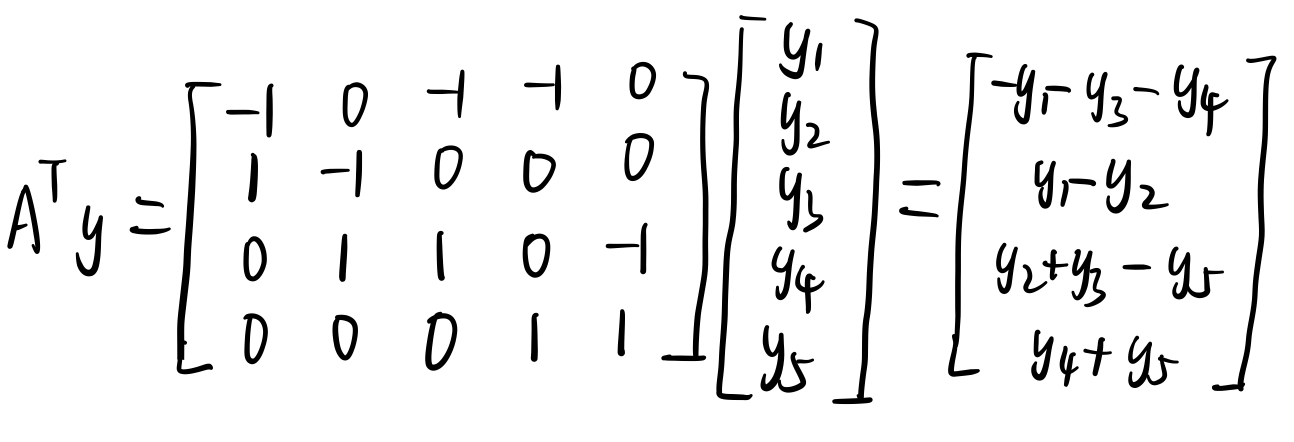 $A^T y = \begin{bmatrix} -1 & 0 & -1 & -1 & 0 \\ 1 & -1 & 0 & 0 & 0 \\ 0 & 1 & 1 & 0 & -1 \\ 0 & 0 & 0 & 1 & 1 \end{bmatrix} \begin{bmatrix} y_1 \\ y_2 \\ y_3 \\ y_4 \\ y_5 \end{bmatrix} = \begin{bmatrix} -y_1 - y_3 - y_4 \\ y_1 - y_2 \\ y_2 + y_3 - y_5 \\ y_4 + y_5 \end{bmatrix}$